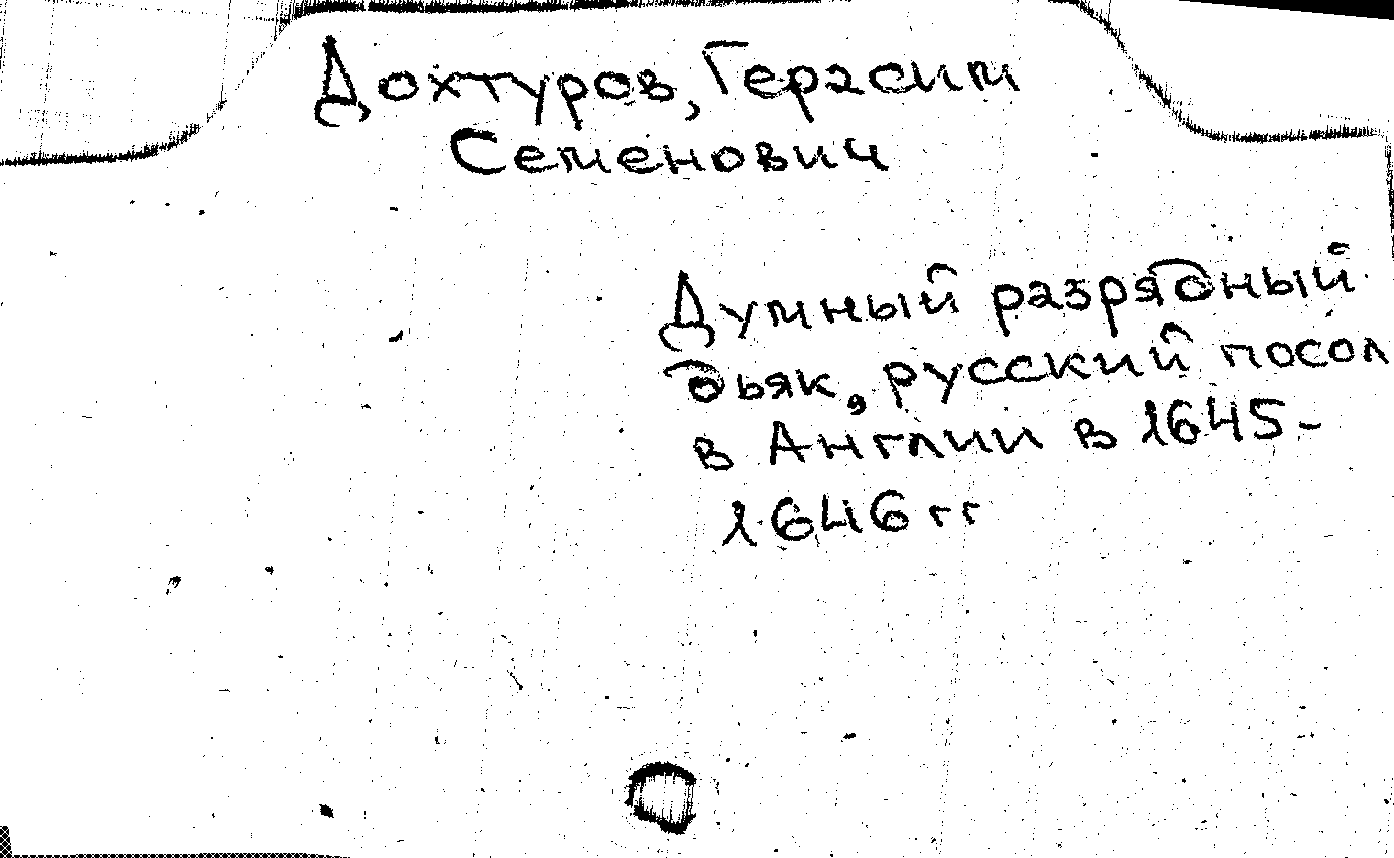 Дохтуров, Герасим
Семенович
Думный разрядный
дьяк, русский посол
в Англии в 1645-
1646 гг